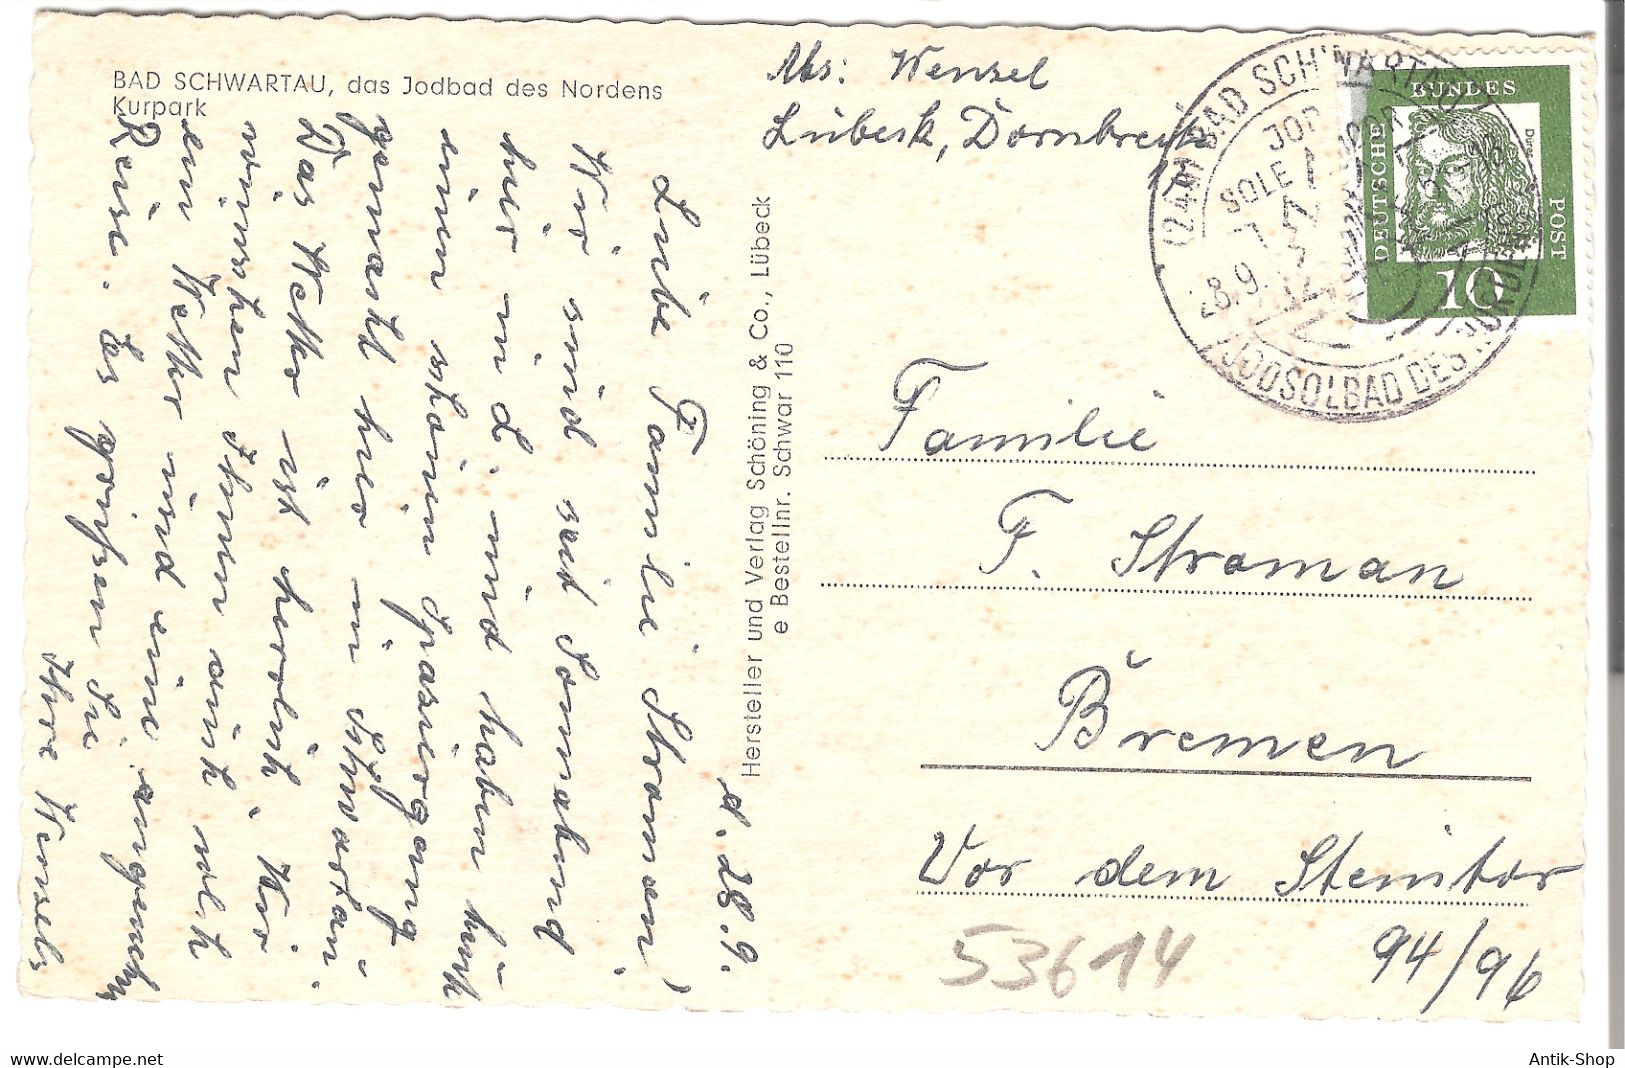 BAD SCHWARTAU, das Jodbad des Nordens
Kurpark
Abs: Wenzel
Lübeck, Dornbreite
(24b) BAD SCHWARTAU
JOD
SOLE
MOOR
28.9.
JODSOLBAD DES NORDENS
BUNDES
DEUTSCHE
POST
Dürer
10
d. 28.9.
Liebe Familie Stroman!
Wir sind seit Sonnabend
hier in L. und haben heute
einen schönen Spaziergang
gemacht hier in Schwartau.
Das Wetter ist herrlich. Wir
wünschen Ihnen auch solch
ein Wetter und eine angenehme
Reise. Es grüßen Sie
Ihre Wenzels
Hersteller und Verlag Schöning & Co., Lübeck
e Bestellnr. Schwar 110
Familie
F. Stroman
Bremen
Vor dem Steintor
94/96
53614
Antik-Shop
delcampe.net